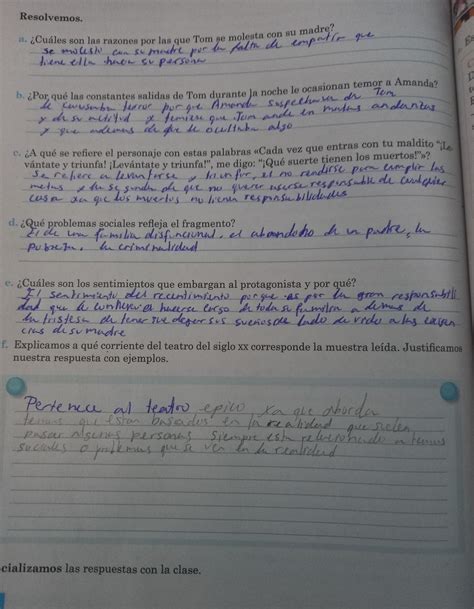 Resolvemos.
a. ¿Cuáles son las razones por las que Tom se molesta con su madre?
se molesto con su madre por la falta de empatía que
tiene ella hacia su persona
b. ¿Por qué las constantes salidas de Tom durante la noche le ocasionan temor a Amanda?
le causaba terror por que Amanda sospechaba de Tom
y de su actitud y temiese que Tom ande en malas andanzas
y que ademas de que le ocultaba algo
c. ¿A qué se refiere el personaje con estas palabras «Cada vez que entras con tu maldito "¡Le
vántate y triunfa! ¡Levántate y triunfa!", me digo: "¡Qué suerte tienen los muertos!"»?
Se refiere a levantarse y triunfar, el no rendirse para cumplir las
metas y la segunda de que no querer hacerse responsable de cualquier
cosa ya que los muertos no tienen responsabilidades
d. ¿Qué problemas sociales refleja el fragmento?
El de una familia disfuncional, el abandono de un padre, la
pobreza, la criminalidad
e. ¿Cuáles son los sentimientos que embargan al protagonista y por qué?
El sentimiento del recentimiento porque es por la gran responsabili
dad que le conlleva el hacerse cargo de toda su familia a demas de
la tristesa de tener que dejar sus sueños de lado devido a las exigen
cias de su madre
f. Explicamos a qué corriente del teatro del siglo XX corresponde la muestra leída. Justificamos
nuestra respuesta con ejemplos.
Pertenece al teatro epico, ya que aborda
temas que estan basados en la realidad que suelen
pasar algunas personas siempre esta relacionando a temas
sociales o problemas que se ven en la realidad
cializamos las respuestas con la clase.